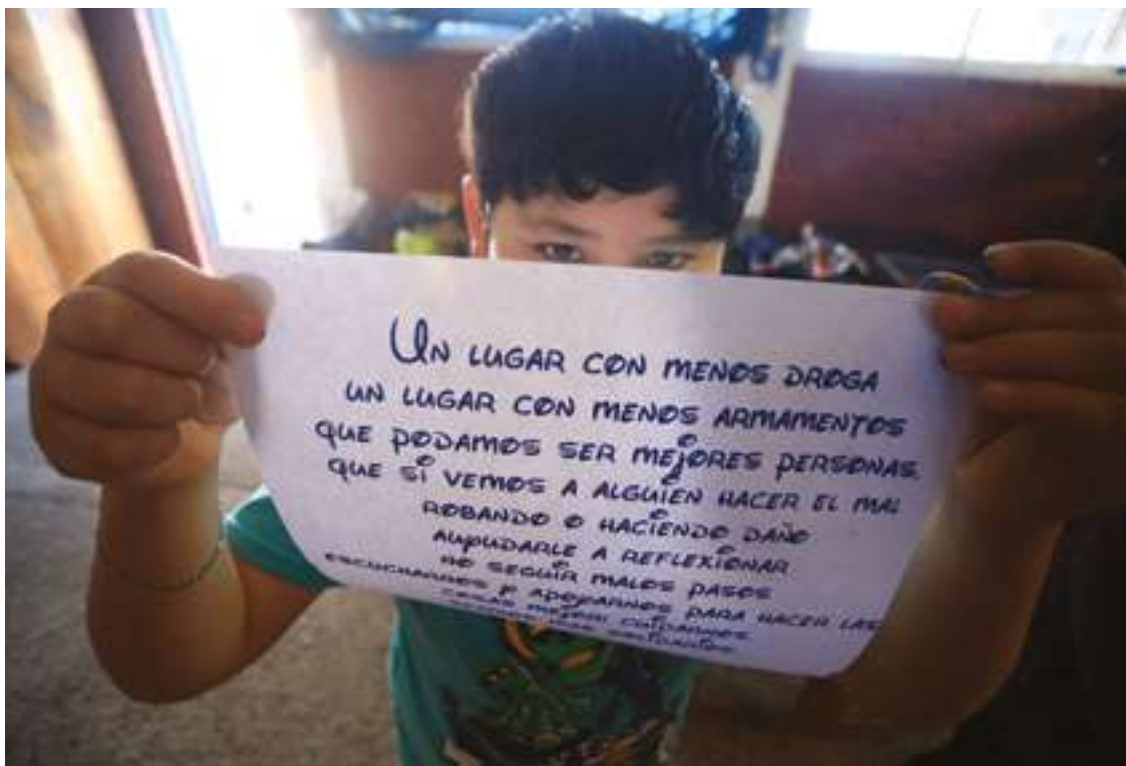 Un lugar con menos droga
un lugar con menos armamentos
que podamos ser mejores personas.
que si vemos a alguien hacer el mal
robando o haciendo daño
ayudarle a reflexionar
no seguir malos pasos
escucharnos y apoyarnos para hacer las
cosas mejor cuidarnos